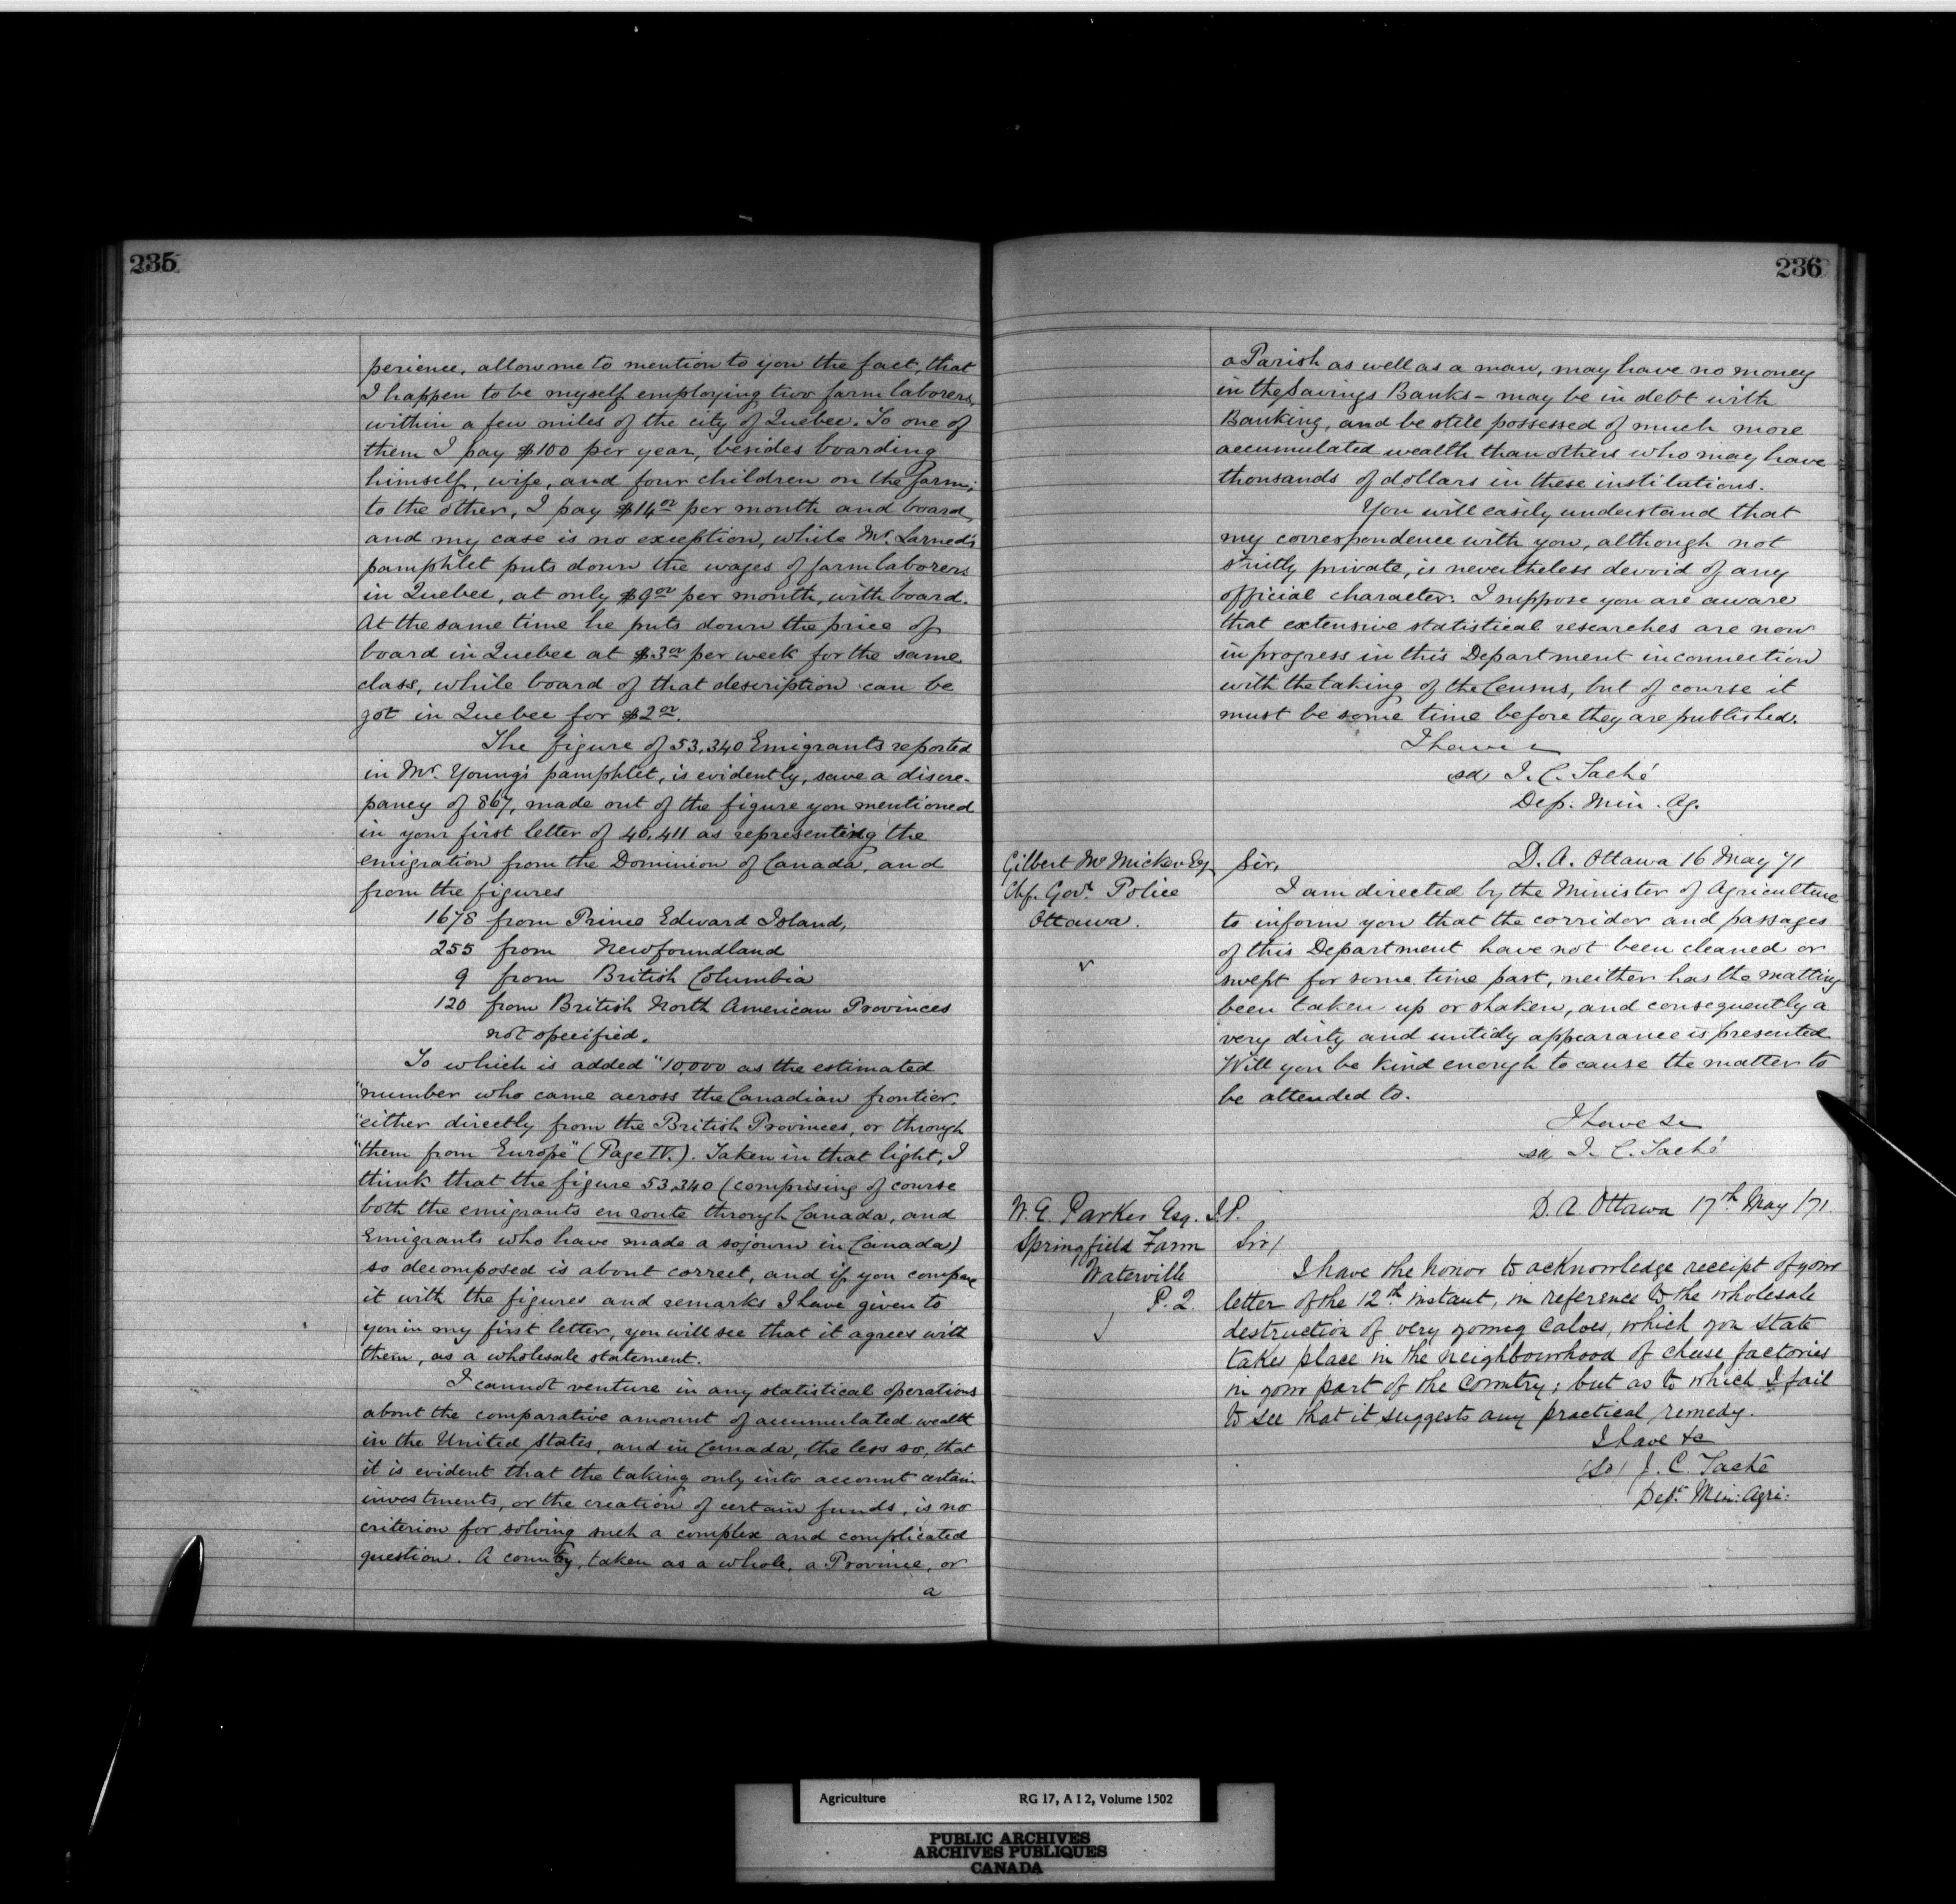 235
perience, allow me to mention to you the fact, that
I happen to be myself employing two farm laborers,
within a few miles of the city of Quebec. To one of
them I pay $100 per year, besides boarding
himself, wife, and four children on the farm;
to the other, I pay $14.00 per month and board,
and my case is no exception, while Mr. Larned's
pamphlet puts down the wages of farm laborers
in Quebec, at only $9.00 per month, with board.
At the same time he puts down the price of
board in Quebec at $3.00 per week for the same
class, while board of that description can be
got in Quebec for $2.00.
The figure of 53,340 Emigrants reported
in Mr. Young's pamphlet, is evidently, save a discre-
pancy of 867, made out of the figure you mentioned
in your first letter of 40,411 as representing the
emigration from the Dominion of Canada, and
from the figures
1678 from Prince Edward Island,
255 from Newfoundland
9 from British Columbia
120 from British North American Provinces
not specified.
To which is added "10,000 as the estimated
"number who came across the Canadian frontier.
"either directly from the British Provinces, or through
"them from Europe" (Page IV.). Taken in that light, I
think that the figure 53,340 (comprising of course
both the emigrants en route through Canada, and
Emigrants who have made a sojourn in Canada)
so decomposed is about correct, and if you compare
it with the figures and remarks I have given to
you in my first letter, you will see that it agrees with
them, as a wholesale statement.
I cannot venture in any statistical operations
about the comparative amount of accumulated wealth
in the United States, and in Canada, the less so, that
it is evident that the taking only into account certain
investments, or the creation of certain funds, is no
criterion for solving such a complex and complicated
question. A country, taken as a whole, a Province, or
a
236
a Parish as well as a man, may have no money
in the Savings Banks - may be in debt with
Banking, and be still possessed of much more
accumulated wealth than others who may have
thousands of dollars in these institutions.
You will easily understand that
my correspondence with you, although not
strictly private, is nevertheless devoid of any
official character. I suppose you are aware
that extensive statistical researches are now
in progress in this Department in connection
with the taking of the Census, but of course it
must be some time before they are published.
I have &
(sd) J. C. Taché
Dep. Min. Ag.
Gilbert McMicken Esq
Chf. Govt. Police
Ottawa.
D. A. Ottawa 16 May 71
Sir,
I am directed by the Minister of Agriculture
to inform you that the corridor and passages
of this Department have not been cleaned or
swept for some time past, neither has the matting
been taken up or shaken, and consequently a
very dirty and untidy appearance is presented
Will you be kind enough to cause the matter to
be attended to.
I have &c
sd J. C. Taché
W. E. Parker Esq. J.P.
Springfield Farm
Waterville
P. 2.
D. A. Ottawa 17th May /71.
Sir/
I have the honor to acknowledge receipt of your
letter of the 12th instant, in reference to the wholesale
destruction of very young Calves, which you state
takes place in the neighbourhood of cheese factories
in your part of the Country; but as to which I fail
to see that it suggests any practical remedy.
I have &c
(Sd) J. C. Taché
Depy. Min: Agri:
Agriculture RG 17, A I 2, Volume 1502
PUBLIC ARCHIVES
ARCHIVES PUBLIQUES
CANADA